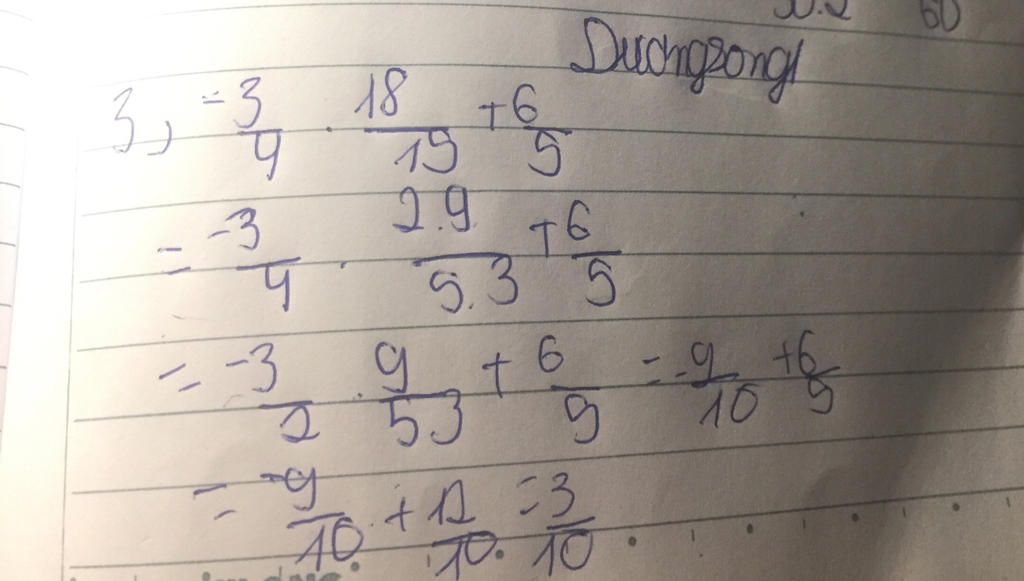 30.2 60
Duongsongl
3, -3/4 . 18/15 + 6/5
= -3/4 . 2.9/5.3 + 6/5
= -3/2 . 9/53 + 6/5 = -9/10 + 6/5
= -9/10 + 12/10 = 3/10